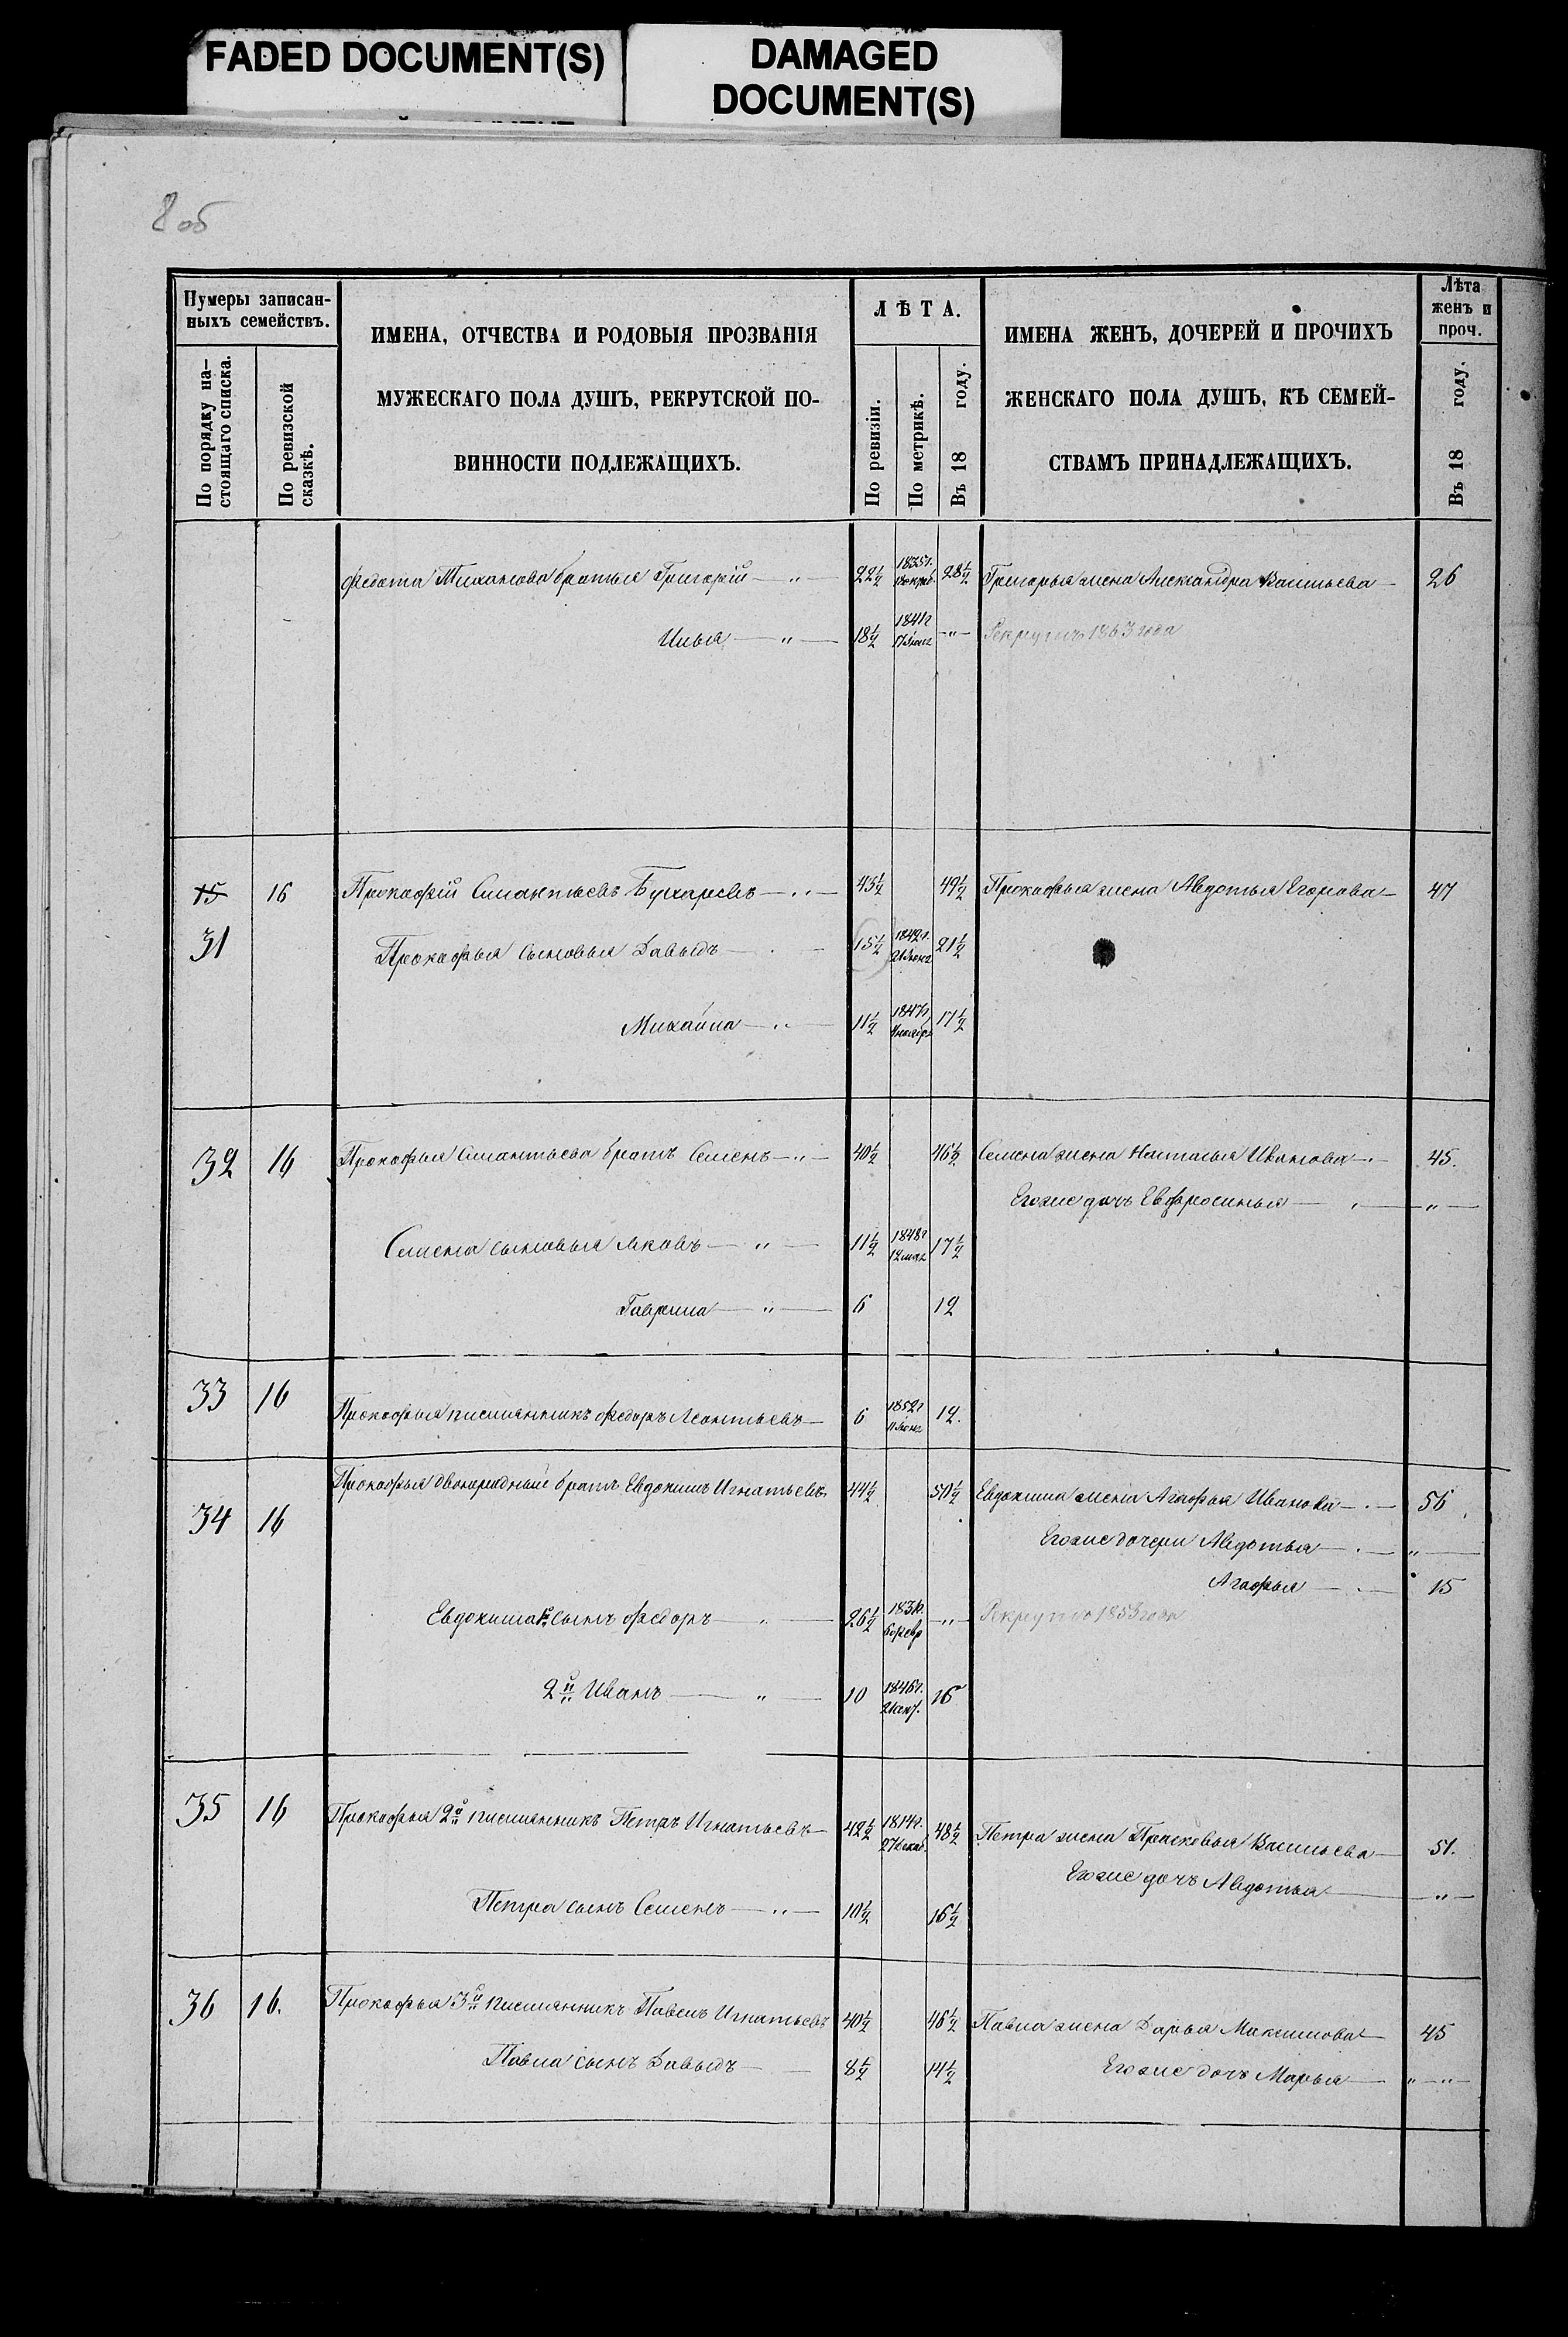 FADED DOCUMENT(S)
DAMAGED
DOCUMENT(S)
8 об
Нумеры записан-
ныхъ семействъ.
По порядку на-
стоящаго списка.
По ревизской
сказкѣ.
ИМЕНА, ОТЧЕСТВА И РОДОВЫЯ ПРОЗВАНІЯ
МУЖЕСКАГО ПОЛА ДУШЪ, РЕКРУТСКОЙ ПО-
ВИННОСТИ ПОДЛЕЖАЩИХЪ.
ЛѢТА.
По ревизіи.
По метрикѣ.
Въ 18 году.
ИМЕНА ЖЕНЪ, ДОЧЕРЕЙ И ПРОЧИХЪ
ЖЕНСКАГО ПОЛА ДУШЪ, КЪ СЕМЕЙ-
СТВАМЪ ПРИНАДЛЕЖАЩИХЪ.
Лѣта
женъ и
проч.
Въ 18 году.
Федота братья Григорій — " — 22½ 1835г. 28½ Григорья жена Александра Васильева — 26
Илья — " — 18½ 1841г — " — Рекрутъ 1863 года
15 16 Прокофій Бухаревъ — " — 43½ 49½ Прокофья жена Авдотья Егорова — 47
31 Прокофья сыновья Давыдъ — 15½ 1842г. 21½
Михайла — " — 11½ 1847г 17½
32 16 Прокофья братъ Семенъ — " — 40½ 46½ Семена жена Наталья Иванова — " — 45.
Егоже дочь Евфросинья — " —
Семена сыновья Яковъ — " — 11½ 1848г 12 мая 17½
Гаврила — " — 6 12
33 16 Прокофья племянникъ Федоръ Леонтьевъ — 6 1852г 12.
34 16 Прокофья двоюродный братъ Евдокимъ Игнатьевъ 44½ 50½ Евдокима жена Агафья Иванова — 56
Егоже дочери Авдотья — " —
Агафья — 15
Евдокима сынъ Федоръ — " — 26½ — " — Рекрутъ 1853 года
2й Иванъ — " — 10 1846г. 16
35 16 Прокофья 2й племянникъ Петръ Игнатьевъ — 42½ 1814г. 48½ Петра жена Прасковья Васильева — 51.
Егоже дочь Авдотья — " —
Петра сынъ Семенъ — " — 10½ 16½
36 16. Прокофья 3й племянникъ Павелъ Игнатьевъ 40½ 46½ Павла жена Дарья Максимова — 45
Павла сынъ Давыдъ — 8½ 14½ Егоже дочь Марья — " — " —